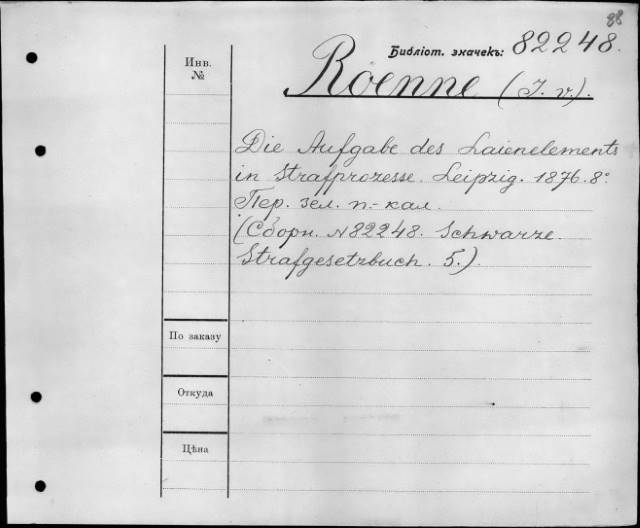 88
Библіот. значекъ: 82248.
Инв.
№
Roenne (J. v.).
Die Aufgabe des Laienelements
in Strafprozesse. Leipzig. 1876. 8º
Пер. зел. п-кал.
(Сборн. №82248. Schwarze.
Strafgesetzbuch. 5.)
По заказу
Откуда
Цѣна